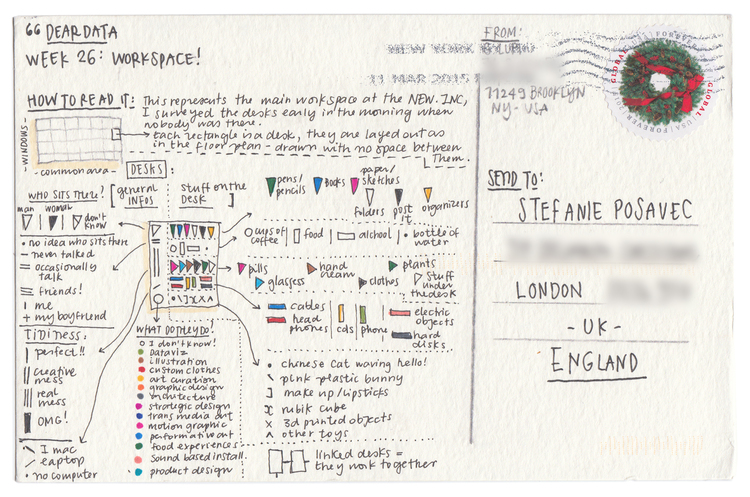 “ DEAR DATA
WEEK 26: WORKSPACE!
HOW TO READ IT: This represents the main workspace at the NEW.INC,
I surveyed the desks early in the morning when
nobody was there.
Each rectangle is a desk, they are layed out as
in the floor plan - drawn with no space between
them.
WINDOWS
common area
DESKS:
WHO SITS THERE?
man
woman
don't know
• no idea who sits there
— never talked
= occasionally talk
friends!
| me
+ my boyfriend
TIDINESS:
| perfect!!
|| creative mess
real mess
OMG!
\ I mac
/ laptop
• no computer
[general INFOS
stuff on the DESK ]
WHAT DO THEY DO?
I don't know!
Dataviz
illustration
custom clothes
art curation
graphic design
architecture
strategic design
trans media art
motion graphic
performative art
food experiences
Sound based install.
product design
pens/ pencils
BOOKS
paper/ sketches
folders
post it
organizers
cups of coffee
food
alchool
• bottle of water
pills
hand cream
plants
glasses
clothes
stuff under the desk
cables
head phones
cds
phone
electric objects
hard disks
• chinese cat waving hello!
\ pink plastic bunny
] make up/lipsticks
rubik cube
x 3d printed objects
^ other toys
linked desks =
they work together
FROM:
G. LUPI
11249 BROOKLYN
NY - USA
NEW YORK
11 MAR 2015
GLOBAL
FOREVER
GLOBAL
USA/FOREVER
SEND TO:
STEFANIE POSAVEC
LONDON
- UK -
ENGLAND